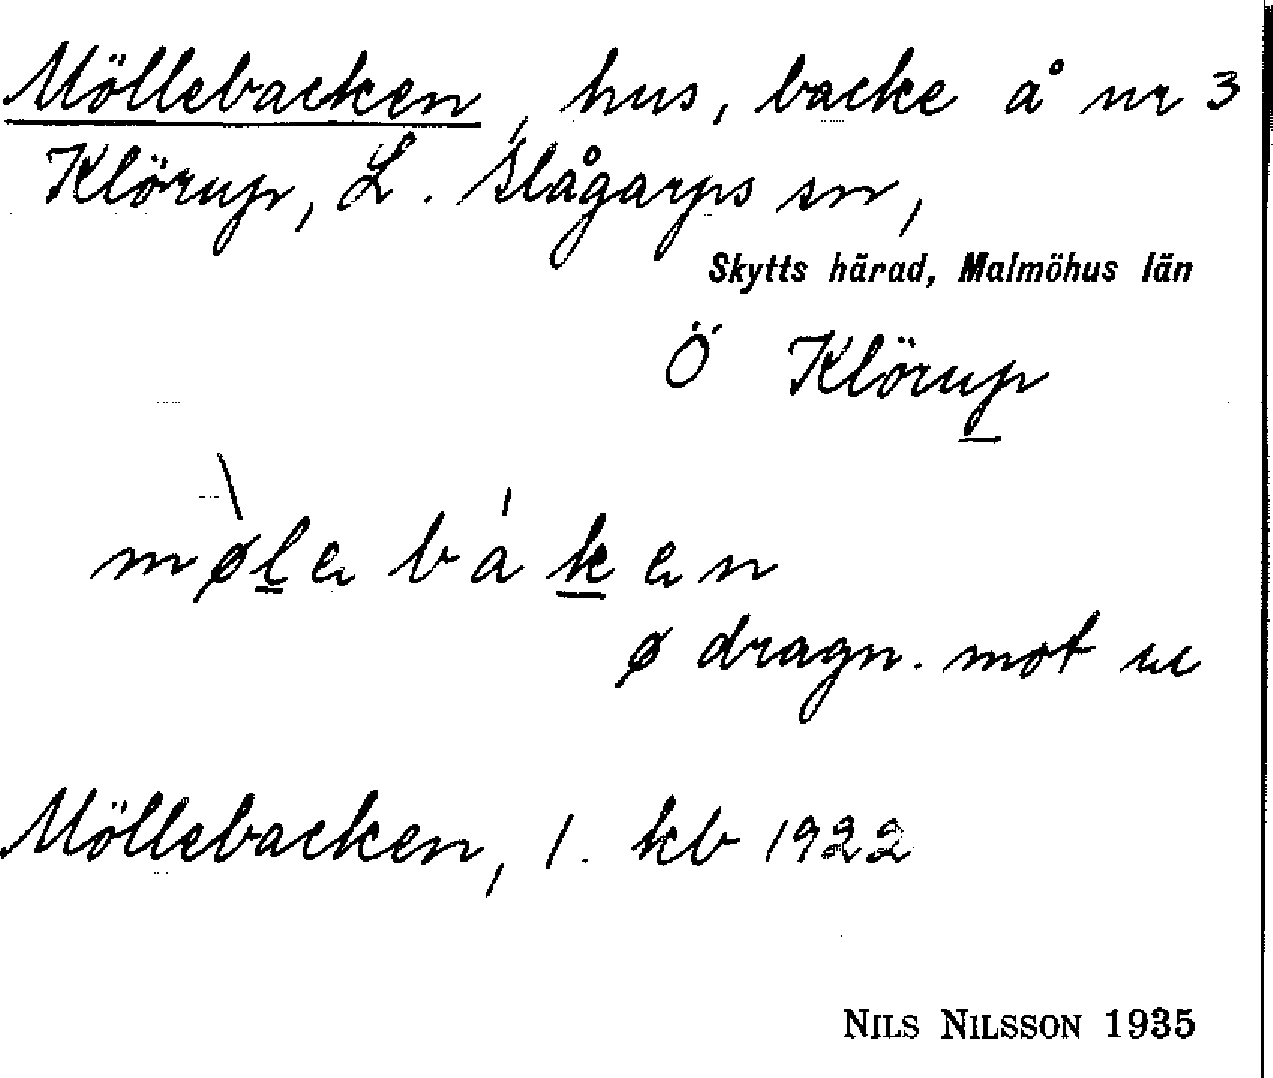 Möllebacken, hus, backe å nr 3
Klörup, L. Slågarps sn,
Skytts härad, Malmöhus län
Ö Klörup
mø̀lebákən
ø dragn. mot
Möllebacken, 1. kb 1922
NILS NILSSON 1935